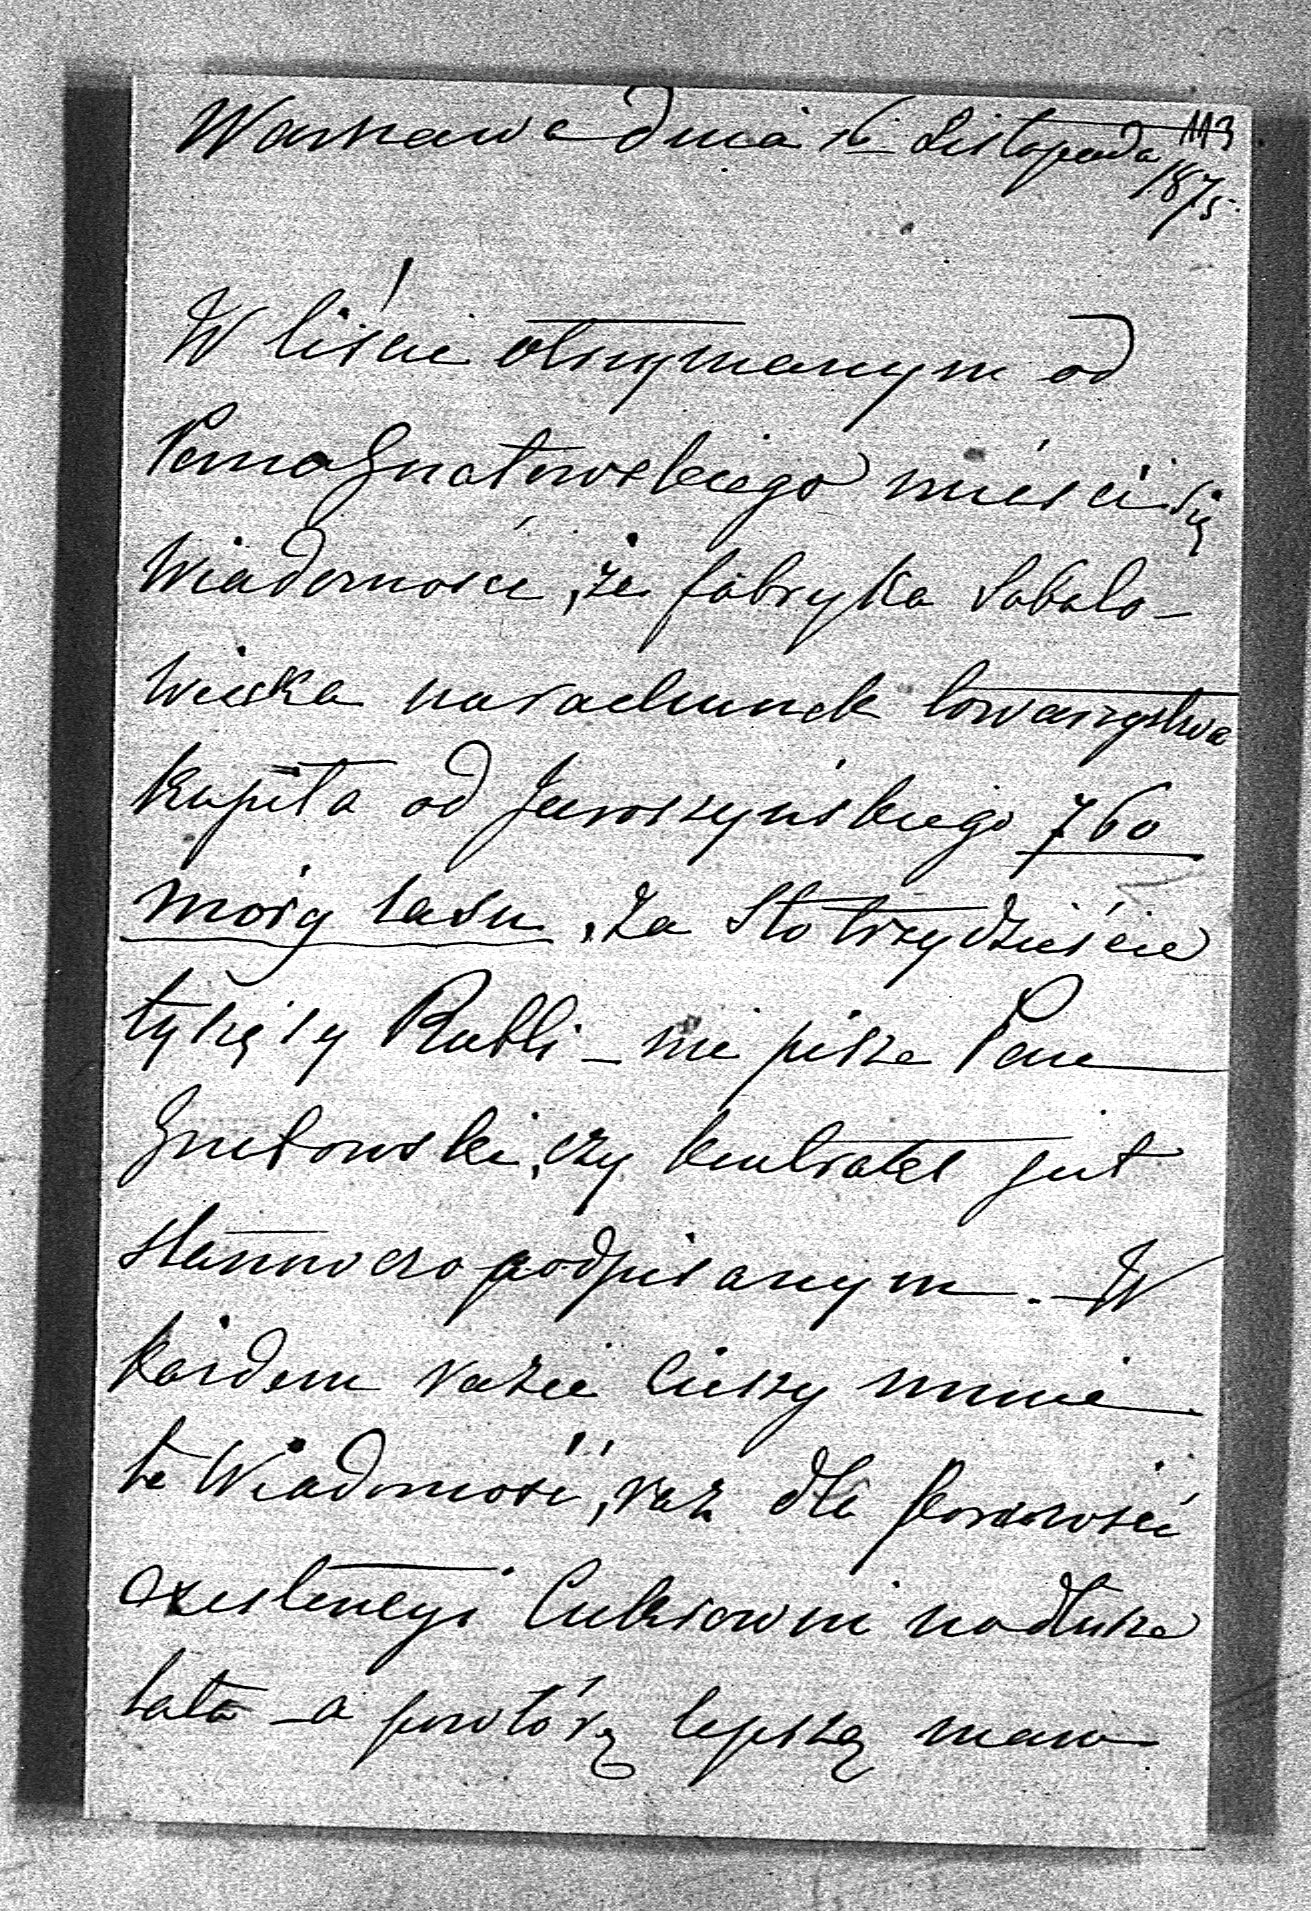 113
Warszawa dnia 16 Listopada
1875.
W liście otrzymanym od
Pana Gnatowskiego mieści się
Wiadomość, że fabryka Sobolo-
wiecka na rachunek towarzystwa
kupiła od Jaroszyńskiego 760
morg lasu, za sto trzydzieście
tysięcy Rubli _ nie pisze Pan
Gnatowski, czy kontrakt jest
stanowczo podpisanym. _ W
każdem razie cieszy mnie
ta Wiadomość, raz dla
egzestencyi Cukrowni na dłuższe
lata _ a powtórę lepszą mam